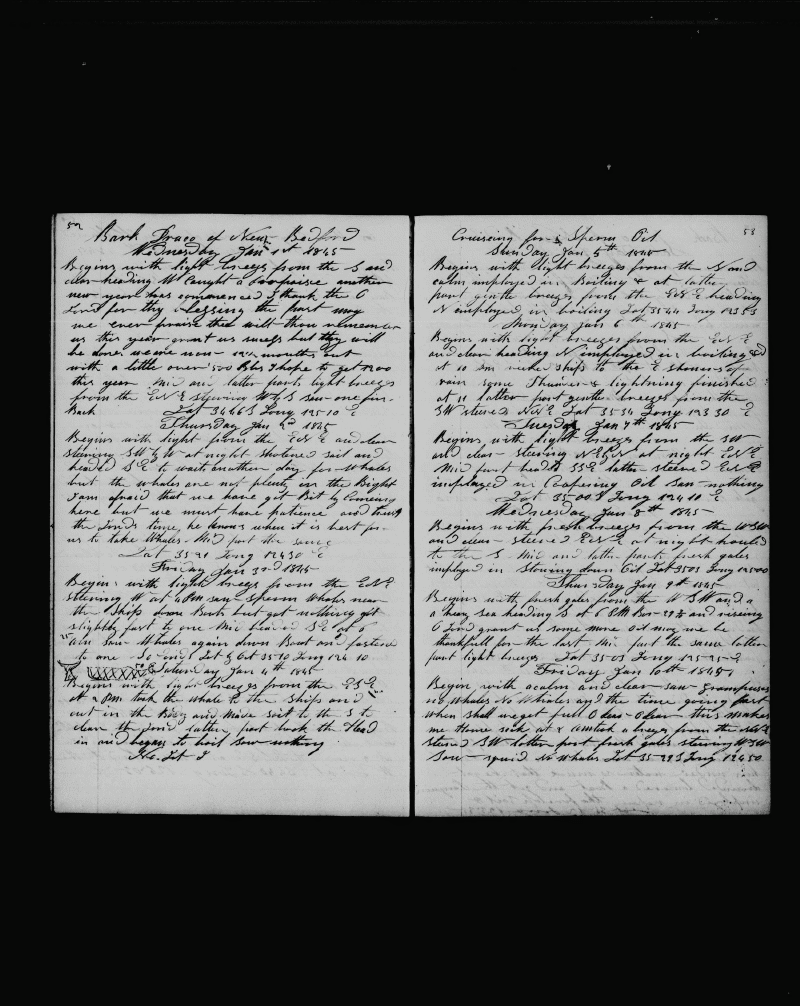 52
Bark Draco of New Bedford
Wednesday Jan 1st 1845
Begins with light breezes from the S and
clear heading W Caught a Porpoise another
new year has commenced I thank the O
Lord for thy blessing the past may
we ever praise thee wilt thou remember
us this year grant us success but thy will
be done we are now months out
with a little over 500 Bbls I hope to get 1200
this year Mid and latter parts light breezes
from the ENE steering W by S saw one fin
Back Lat 34 46 S Long 125 10 E
Thursday Jan 2nd 1845
Begins with light from the ENE and clear
steering SW by W at night shortened sail and
headed SE to wait another day for Whales
but the whales are not plenty in the Bight
I am afraid that we have got Bit by Comeing
here but we must have patience and trust
the Lords time, he knows when it is best for
us to take Whales Mid part the same
Lat 35 21 Long 124 30 E
Friday Jan 3rd 1845
Begins with light breezes from the ENE
steering W at 4 PM saw Sperm Whales near
the Ships down Boats but got nothing got
slightly fast to one Mid headed SE at 6
AM saw Whales again down Boat and fastened
to one So ends Lat by Obt 35 10 Long 124 10
Saturday Jan 4th 1845
Begins with light breezes from the ESE
at 2 PM took the Whale to the Ships and
cut in the Body and Made sail to the S to
clear the Land latter part took the Head
in and began to boil saw nothing
No. Lat L
53
Cruiseing for Sperm Oil
Sunday Jan 5th 1845
Begins with light breezes from the N and
calm imployed in Boiling & at latter
part gentle breezes from the ENE heading
N employed in boiling Lat 35 44 Long 123 53
Monday Jan 6th 1845
Begins with light breezes from the ENE
and clear heading N imployed in boiling
at 10 PM tacked ships to the E showers of
rain some Thunder & lightning finished
at 11 latter part gentle breezes from the
SW steered NNE Lat 35 34 Long 123 30 E
Tuesday Jan 7th 1845
Begins with light breezes from the SW
and clear steering NE by N at night ENE
Mid part headed SSE latter steered ENE
imployed in Coopering Oil saw nothing
Lat 35 00 S Long 124 10 E
Wednesday Jan 8th 1845
Begins with fresh breezes from the WSW
and clear steered ENE at night hauled
to the S Mid and latter parts fresh gales
imployed in stowing down Oil Lat 35 03 Long 125 00
Thursday Jan 9th 1845
Begins with fresh gales from the WSW and a
a heavy sea heading S at 6 PM Bar 29½ and riseing
O Lord grant us some more Oil may we be
thankfull for the last Mid part the same latter
part light breezes Lat 35 03 Long 125 25 E
Friday Jan 10th 1845
Begin with a calm and clear saw Grampuses
no Whales No Whales and the time going fast
When shall we get full O dear O dear this makes
me Home sick at 2 AM took a breeze from the NNE
steered SW latter part fresh gales steering WSW
Saw squid No Whales Lat 35 29 S Long 124 50